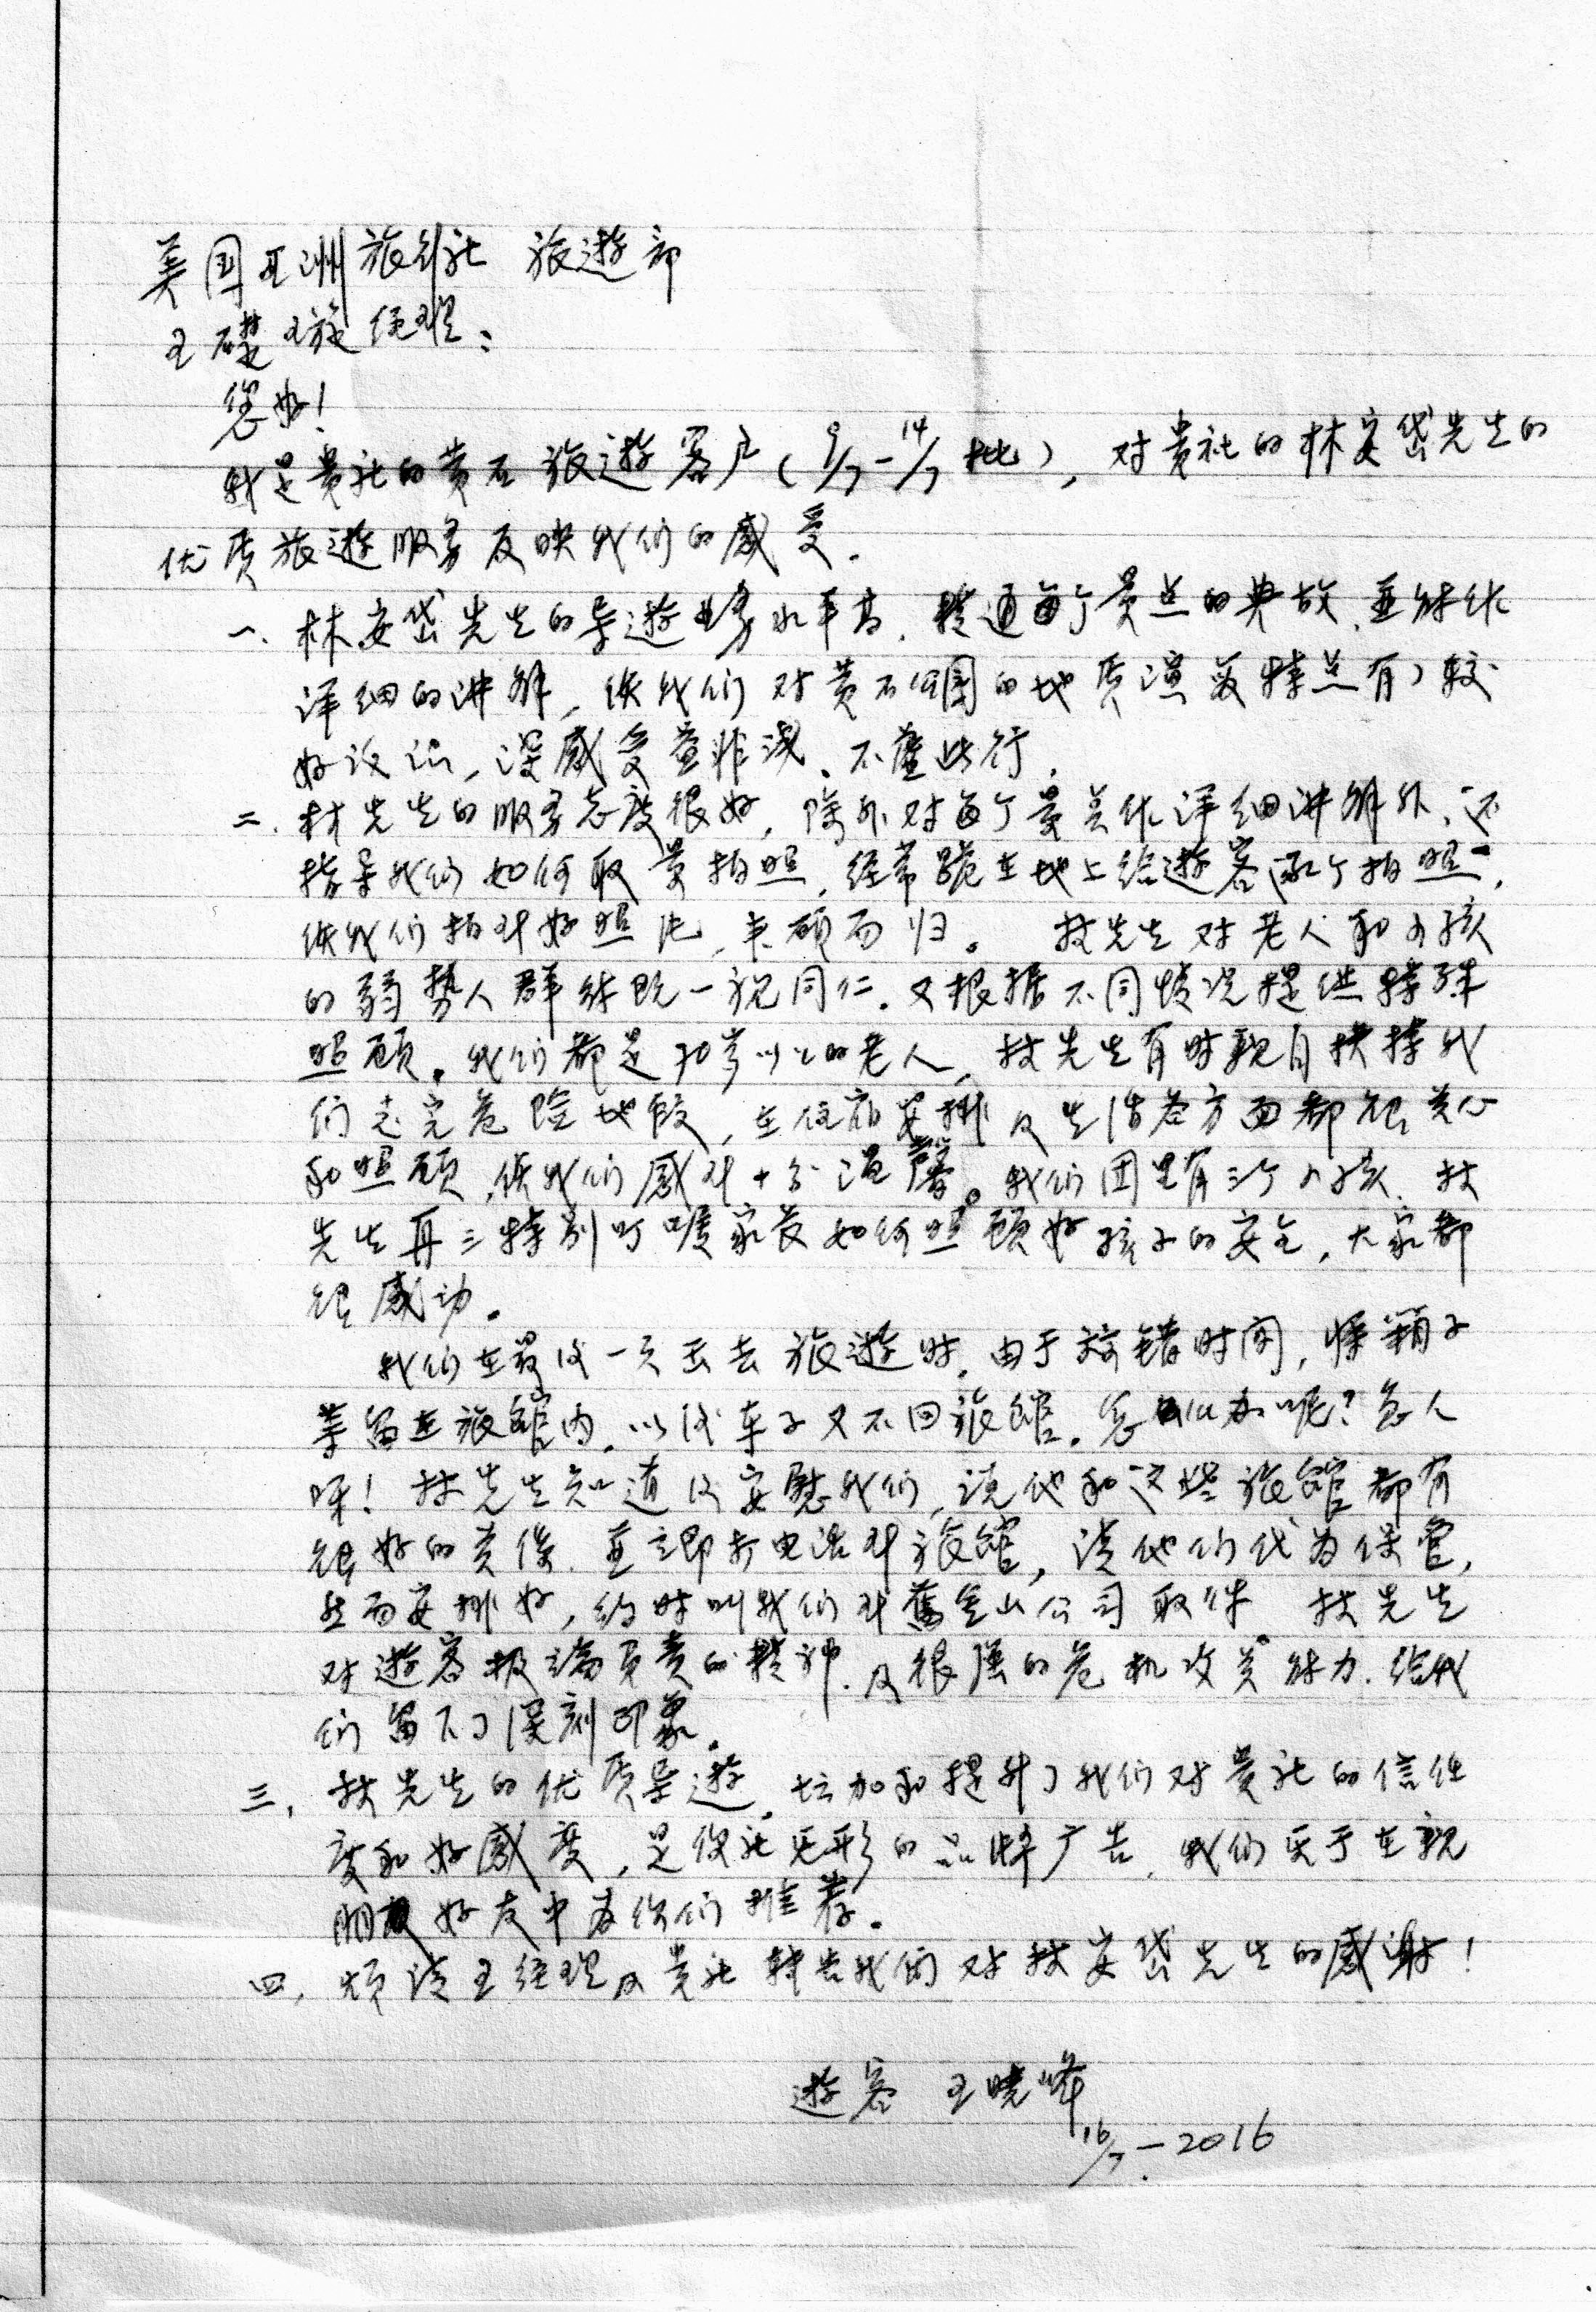 美国亚洲旅行社 旅遊部
王礎璇经理：
您好！
我是贵社的黄石旅遊客户（9/7-14/7批），对贵社的林安岱先生的
优质旅遊服务反映我们的感受。
一、林安岱先生的导遊业务水平高，精通每个景点的典故，並能作
详细的讲解，使我们对黄石公園的地质演变特点有了较
好认识，深感受益非浅，不虚此行。
二、林先生的服务态度很好，除外对每个景点作详细讲解外，还
指导我们如何取景拍照，经常跪在地上给遊客逐个拍照，
使我们拍到好照片，丰硕而归。 林先生对老人和小孩
的弱势人群能既一视同仁，又根据不同情况提供特殊
照顾。我们都是70岁以上的老人，林先生有时親自扶持我
们走完危险地段，在住宿安排及生活各方面都很关心
和照顾，使我们感到十分温馨。我们团里有三个小孩，林
先生再三特别叮嘱家长如何照顾好孩子的安全，大家都
很感动。
我们在最後一天出去旅遊时，由于搞错时间，将鞋子
等留在旅館内，以後车子又不回旅館，怎么办呢？急人
呀！林先生知道後安慰我们，说他和这些旅館都有
很好的关係，並立即打电话到旅館，请他们代为保管，
然而安排好，约时叫我们到舊金山公司取件 林先生
对遊客极端负责的精神，及很强的危机攻关能力，给我
们留下了深刻印象。
三、林先生的优质导遊，增加和提升了我们对贵社的信任
度和好感度，是你社无形的品牌广告，我们乐于在親
朋好友中为你们推荐。
四、烦请王经理及贵社转告我们对林安岱先生的感谢！
遊客 王晓峰
16/7-2016